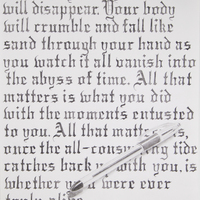 will disappear. Your body
will crumble and fall like
sand through your hand as
you watch it all vanish into
the abyss of time. All that
matters is what you did
with the moments entusted
to you. All that matters is,
once the all-consuming tide
catches back up with you, is
whether you were ever
truly alive.